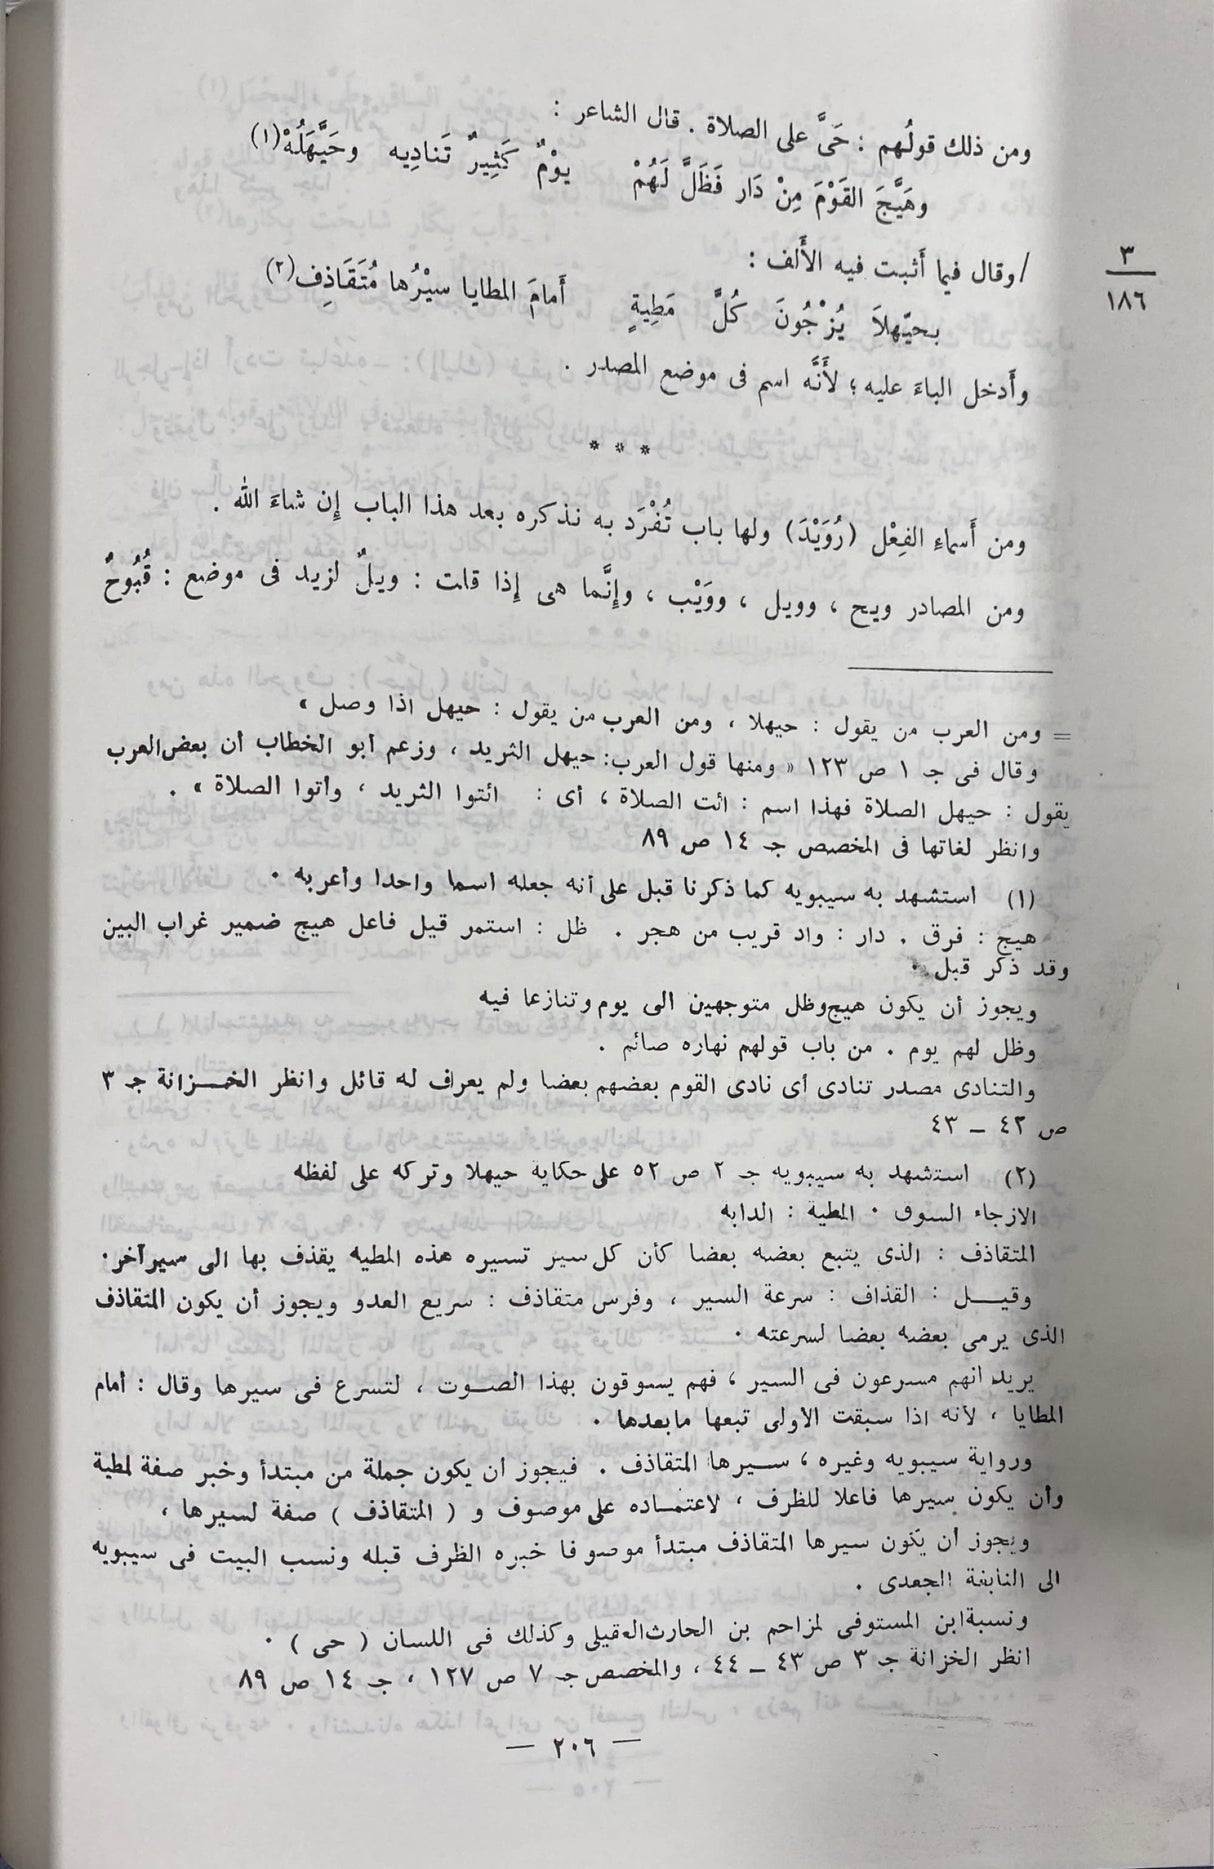 ومن ذلك قولُهم : حَىَّ على الصلاة . قال الشاعر :
وهَيَّجَ القَوْمَ مِنْ دَار فَظَلَّ لَهُمْ يوْمٌ كَثِيرٌ تَنادِيه وحَيَّهَلُهْ(١)
٣
١٨٦
/ وقال فيما أَثبت فيه الأَلف :
بحيّهلاَ يُزْجُونَ كُلَّ مَطِيةٍ أَمامَ المطايا سيْرُها مُتَقَاذِف(٢)
وأَدخل الباءَ عليه ؛ لأَنَّه اسم فى موضع المصدر .
* * *
ومن أَسماءِ الفِعْل (رُوَيْدَ) ولها باب تُفْرَد به نذكره بعد هذا الباب إِن شاءَ الله .
ومن المصادر ويح ، وويل ، ووَيْب ، وإِنَّما هى إِذا قلت : ويلٌ لزيد فى موضع : قُبُوحٌ
= ومن العرب من يقول : حيهلا ، ومن العرب من يقول : حيهل اذا وصل »
وقال فى جـ ١ ص ١٢٣ « ومنها قول العرب: حيهل الثريد ، وزعم أبو الخطاب أن بعض العرب
يقول : حيهل الصلاة فهذا اسم : ائت الصلاة ، أى : ائتوا الثريد ، وأتوا الصلاة » .
وانظر لغاتها فى المخصص جـ ١٤ ص ٨٩
(١) استشهد به سيبويه كما ذكرنا قبل على أنه جعله اسما واحدا وأعربه .
هيج : فرق . دار : واد قريب من هجر . ظل : استمر قيل فاعل هيج ضمير غراب البين
وقد ذكر قبل .
ويجوز أن يكون هيج وظل متوجهين الى يوم وتنازعا فيه
وظل لهم يوم . من باب قولهم نهاره صائم .
والتنادى مصدر تنادى أى نادى القوم بعضهم بعضا ولم يعراف له قائل وانظر الخــزانة جـ ٣
ص ٤٢ – ٤٣
(٢) استشهد به سيبويه جـ ٢ ص ٥٢ على حكاية حيهلا وتركه على لفظه
الازجاء السوق . المطية : الدابه
المتقاذف : الذى يتبع بعضه بعضا كأن كل سير تسيره هذه المطيه يقذف بها الى سير آخر .
وقيــل : القذاف : سرعة السير ، وفرس متقاذف : سريع العدو ويجوز أن يكون المتقاذف
الذى يرمى بعضه بعضا لسرعته .
يريد أنهم مسرعون فى السير ، فهم يسوقون بهذا الصــوت ، لتسرع فى سيرها وقال : أمام
المطايا ، لأنه اذا سبقت الاولى تبعها مابعدها .
ورواية سيبويه وغيره ، ســيرها المتقاذف . فيجوز أن يكون جملة من مبتدأ وخبر صفة لمطية
وأن يكون سيرها فاعلا للظرف ، لاعتمــاده على موصوف و ( المتقاذف ) صفة لسيرها ،
ويجوز أن يكون سيرها المتقاذف مبتدأ موصوفا خبره الظرف قبله ونسب البيت فى سيبويه
الى النابغة الجعدى .
ونسبة ابن المستوفى لمزاحم بن الحارث العقيلى وكذلك فى اللسان ( حى ) .
انظر الخزانة جـ ٣ ص ٤٣ – ٤٤ ، والمخصص جـ ٧ ص ١٢٧ ، جـ ١٤ ص ٨٩
— ٢٠٦ —